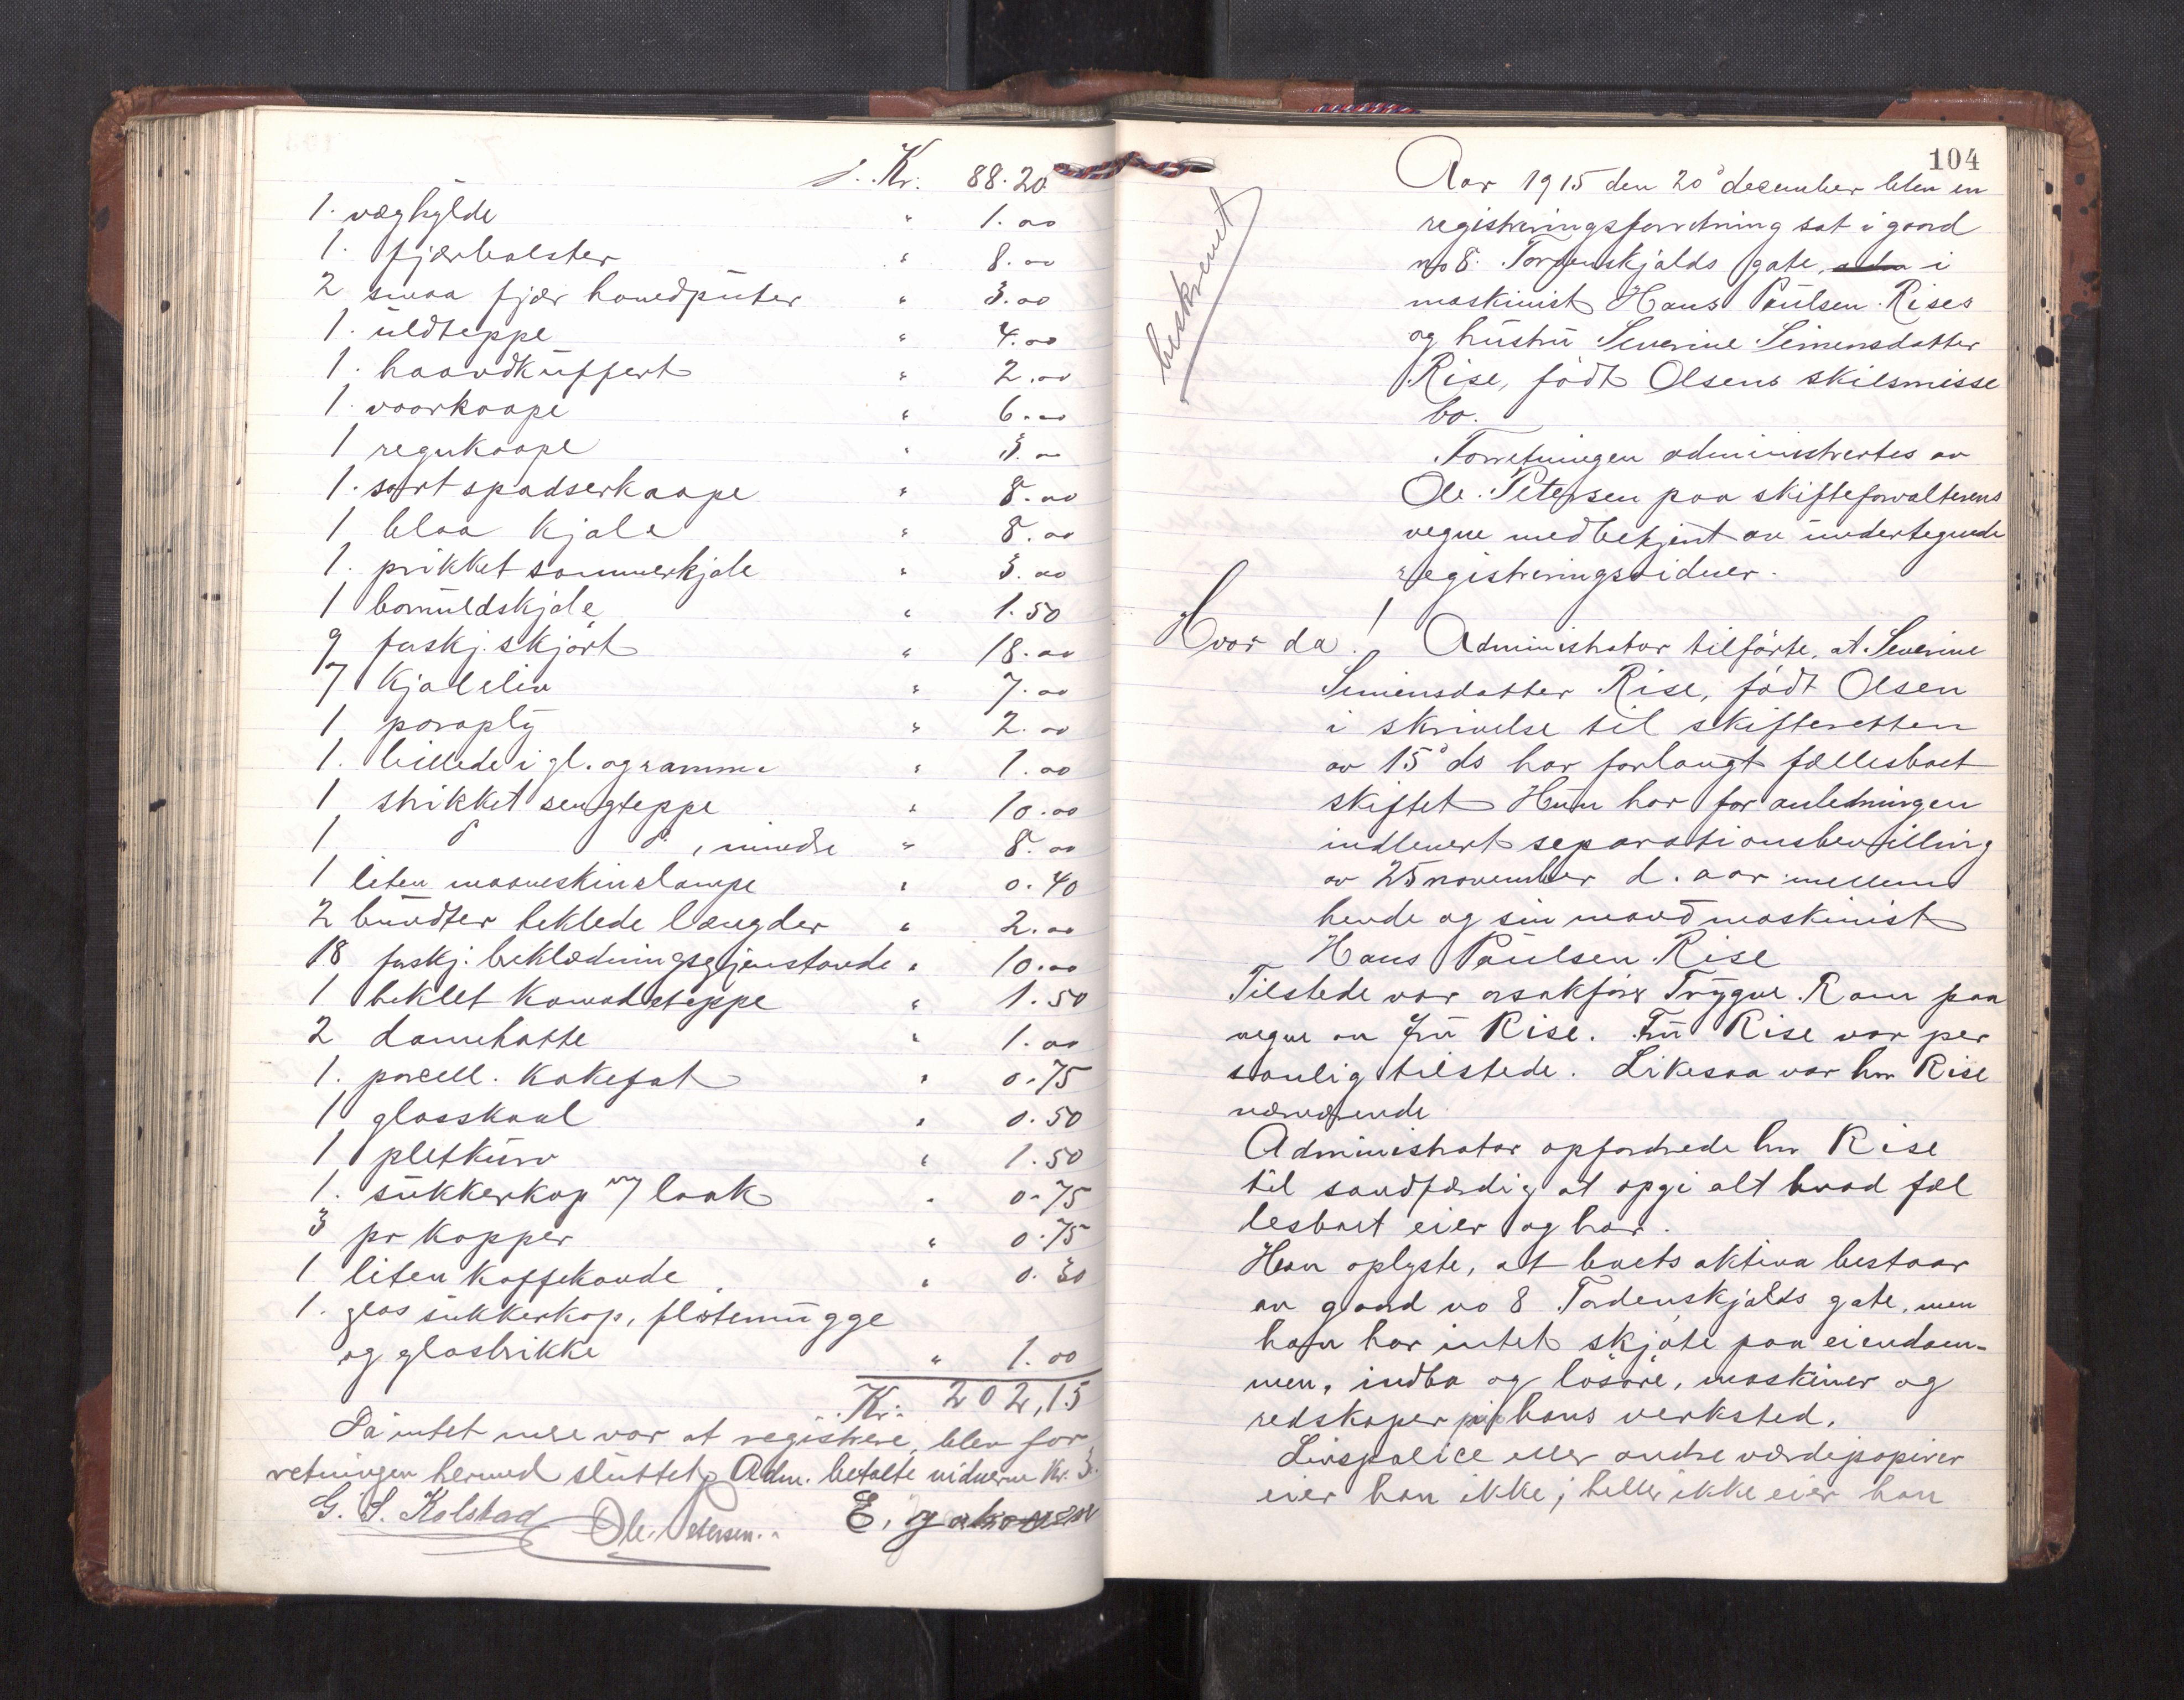 Kr. 88.20
1. væghylde " 1.00
1. fjærbolster " 8.00
2 smaa fjær hovedputer " 3.00
1. uldteppe " 4.00
1. haandkuffert " 2.00
1. vaarkaape " 6.00
1 regnkaape " 3.00
1. sort spadserkaape " 8.00
1 blaa kjole " 8.00
1. prikket sommerkjole " 3.00
1 bomuldskjole " 1.50
9 forskj. skjört " 18.00
7 kjoleliv " 7.00
1 paraply " 2.00
1. billede i gl. og ramme " 1.00
1 strikket sengteppe " 10.00
1 d d. , mindre " 8.00
1 liten maaneskinslampe " 0.40
2 bundter heklede længder " 2.00
18 forskj. beklædningsgjenstande " 10.00
1 heklet komodeteppe " 1.50
2 damehatte " 1.00
1. porcell. kakefat " 0.75
1 glasskaal " 0.50
1 pletkurv " 1.50
1. sukkerkop m/ laak " 0.75
3 pr kopper " 0.75
1 liten kaffekande " 0.30
1. glas sukkerkop, flötemugge
og glasbrikke " 1.00
Kr. 202,15
Da intet mere var at registrere, blev for
retningen hermed sluttet. Adm. betalte vidnerne Kr. 3.
G. S. Kolstad Ole Petersen. E.
104
beskrevet
Aar 1915 den 20de desember blev en
registreringsforretning sat i gaard
no 8. Tordenskjolds gate, i
maskinist Hans Paulsen Rises
og hustru Severine Simensdatter
Rise, födt Olsens skilsmisse
bo.
Forretningen administrertes av
Ole Petersen paa skifteforvalterens
vegne med bekjent av undertegnede
registreringsvidner.
Hvor da! Administrator tilförte, at Severine
Simensdatter Rise, födt Olsen
i skrivelse til skifteretten
av 15de ds har forlangt fællesboet
skiftet Hun har for anledningen
indlevert separationsbevilling
av 25 november d. aar mellem
hende og sin mand maskinist
Hans Paulsen Rise
Tilstede var orsakförer Trygve Ram paa
vegne av fru Rise. Fru Rise var per
sonlig tilstede. Likesaa var hr Rise
nærværende
Administrator opfordrede hr Rise
til sandfærdig at opgi alt hvad fæl
lesboet eier og har.
Han oplyste, at boets aktiva bestaar
av gaard no 8 Tordenskjolds gate, men
han har intet skjöte paa eiendom-
men, indbo og lösöre, maskiner og
redskaper paa hans verksted.
Livspolice eller andre værdipapirer
eier han ikke; heller ikke eier han